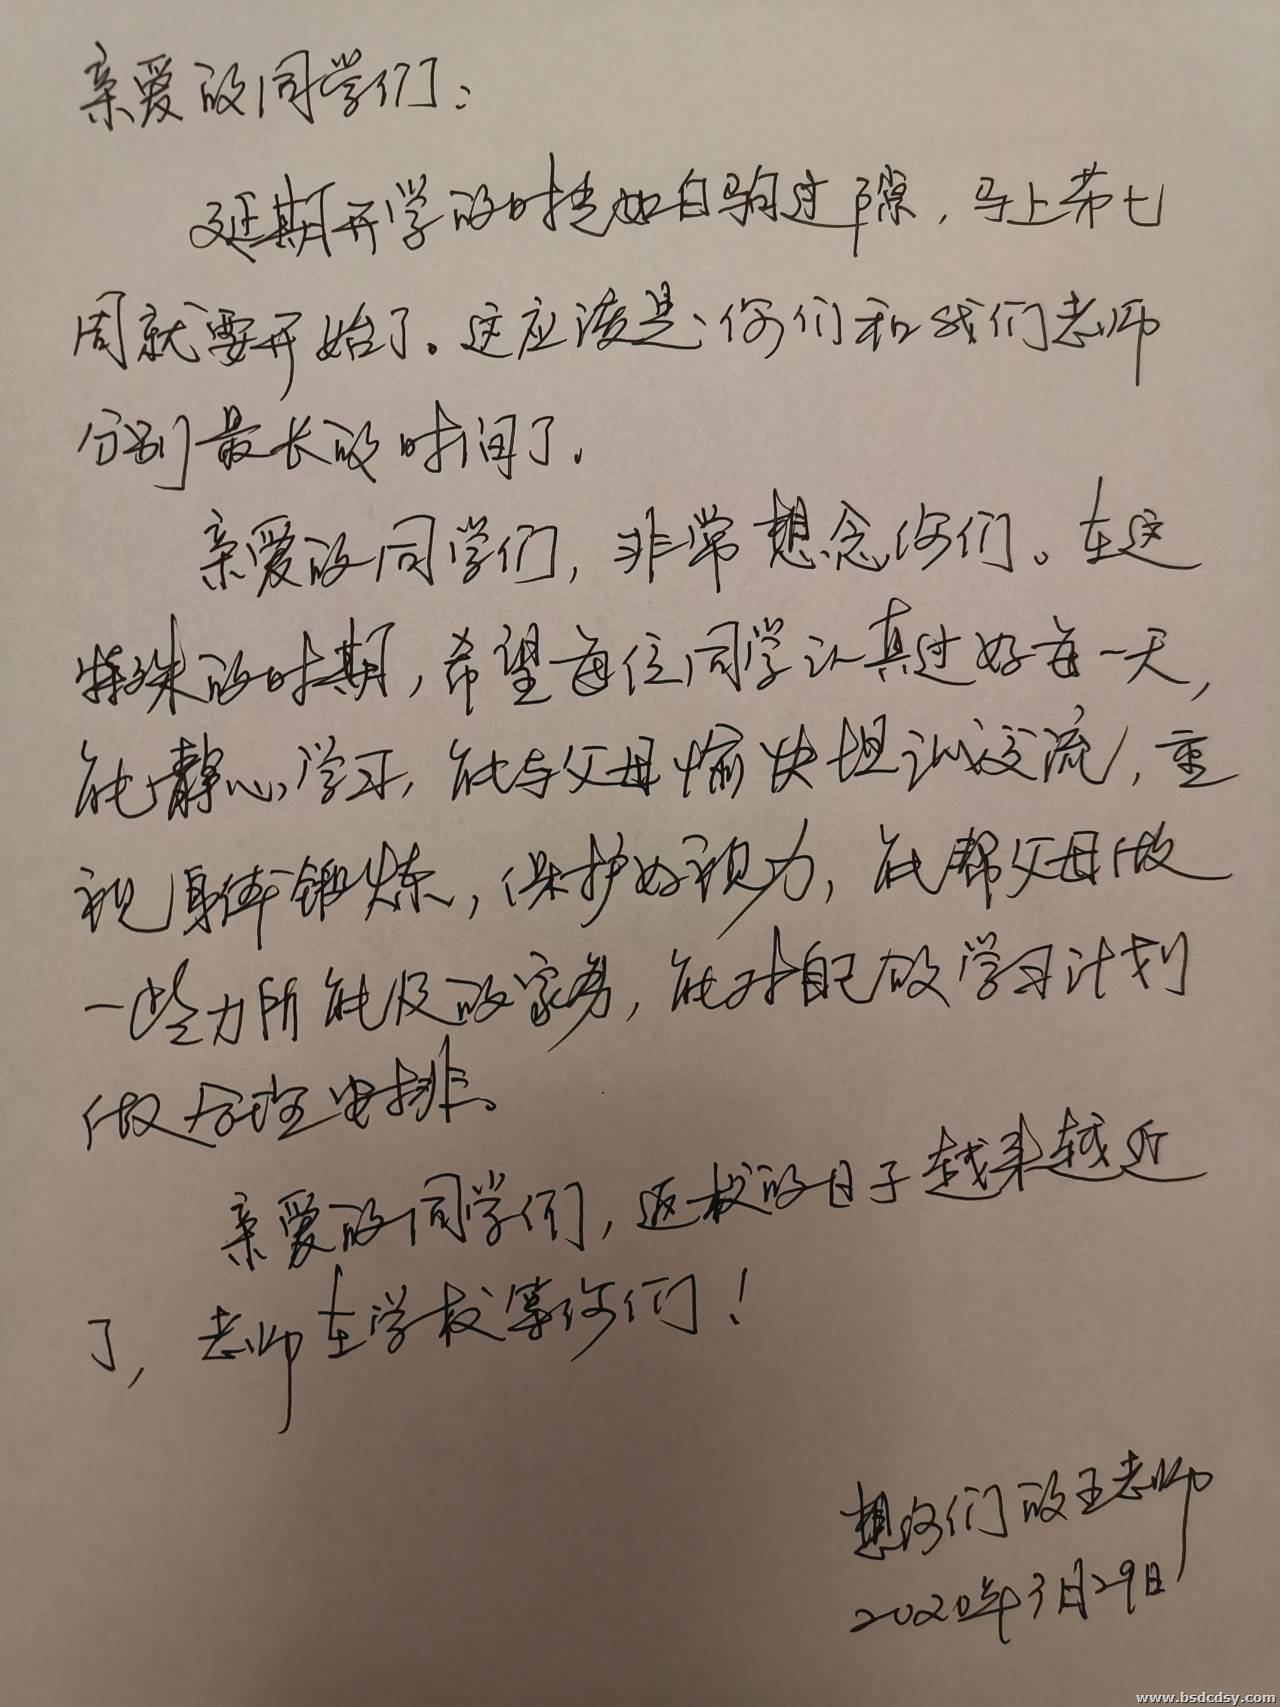 亲爱的同学们：
延期开学的时光如白驹过隙，马上第七
周就要开始了。这应该是你们和我们老师
分别最长的时间了。
亲爱的同学们，非常想念你们。在这
特殊的时期，希望每位同学认真过好每一天，
能静心学习，能与父母愉快坦诚交流，重
视身体锻炼，保护好视力，能帮父母做
一些力所能及的家务，能对自己的学习计划
做合理安排。
亲爱的同学们，返校的日子越来越近
了，老师在学校等你们！
想你们的王老师
2020年3月29日
www.bsdcdsy.com